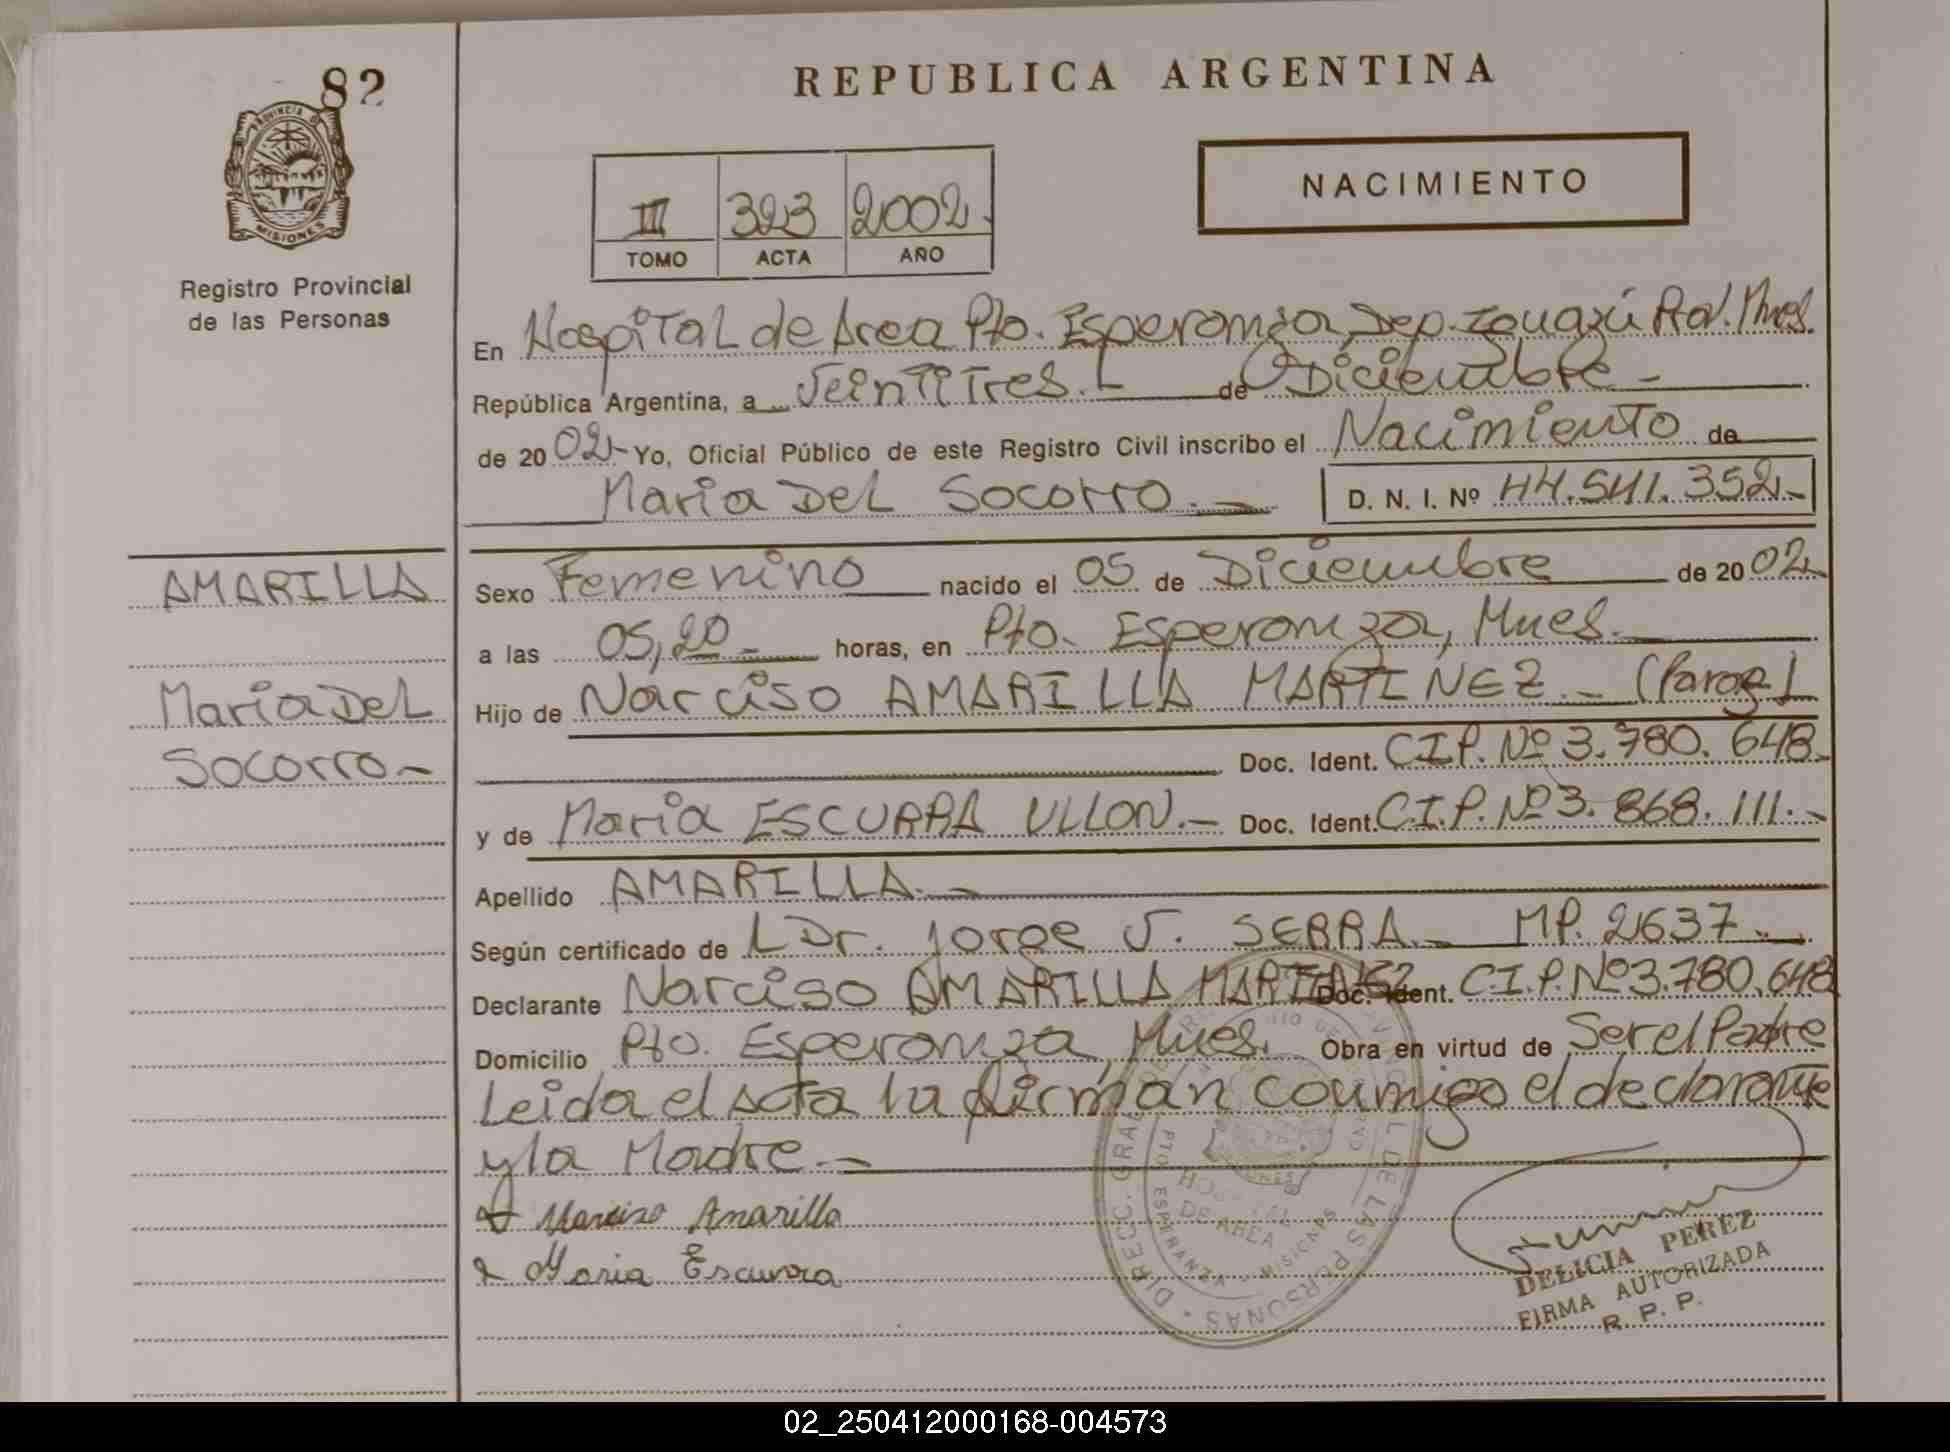 82
REPUBLICA ARGENTINA
PROVINCIA DE
MISIONES
Registro Provincial
de las Personas
NACIMIENTO
III 323 2002.
TOMO ACTA AÑO
En Hospital de Area Pto. Esperanza, Dep. Iguazú Prov. Mnes.
República Argentina, a Veintitres.- de Diciembre -
de 20 02- Yo, Oficial Público de este Registro Civil inscribo el Nacimiento de
Maria Del Socorro.- D. N. I. Nº 44.541.352.-
AMARILLA
Maria Del
Socorro -
Sexo Femenino nacido el 05 de Diciembre de 20 02-
a las 05,20 - horas, en Pto. Esperanza, Mnes.
Hijo de Narciso AMARILLA MARTINEZ.- (Parag.)
Doc. Ident. C.I.P. Nº 3.780.648-
y de Maria ESCURRA ULLON.- Doc. Ident. C.I.P. Nº 3.868.111.-
Apellido AMARILLA.-
Según certificado de Dr. Jorge V. SERRA.- MP. 2637.-
Declarante Narciso AMARILLA MARTINEZ Doc. Ident. C.I.P. Nº 3.780.648
Domicilio Pto. Esperanza, Mnes. Obra en virtud de Ser el Padre
Leida el acta la firman conmigo el declarante
y la Madre.-
Narciso Amarilla
Maria Escurra
DIRECC. GRAL. DE LAS PERSONAS
HOSPITAL
DE AREA
PTO ESPERANZA - MISIONES
DELICIA PEREZ
FIRMA AUTORIZADA
R. P. P.
02_250412000168-004573